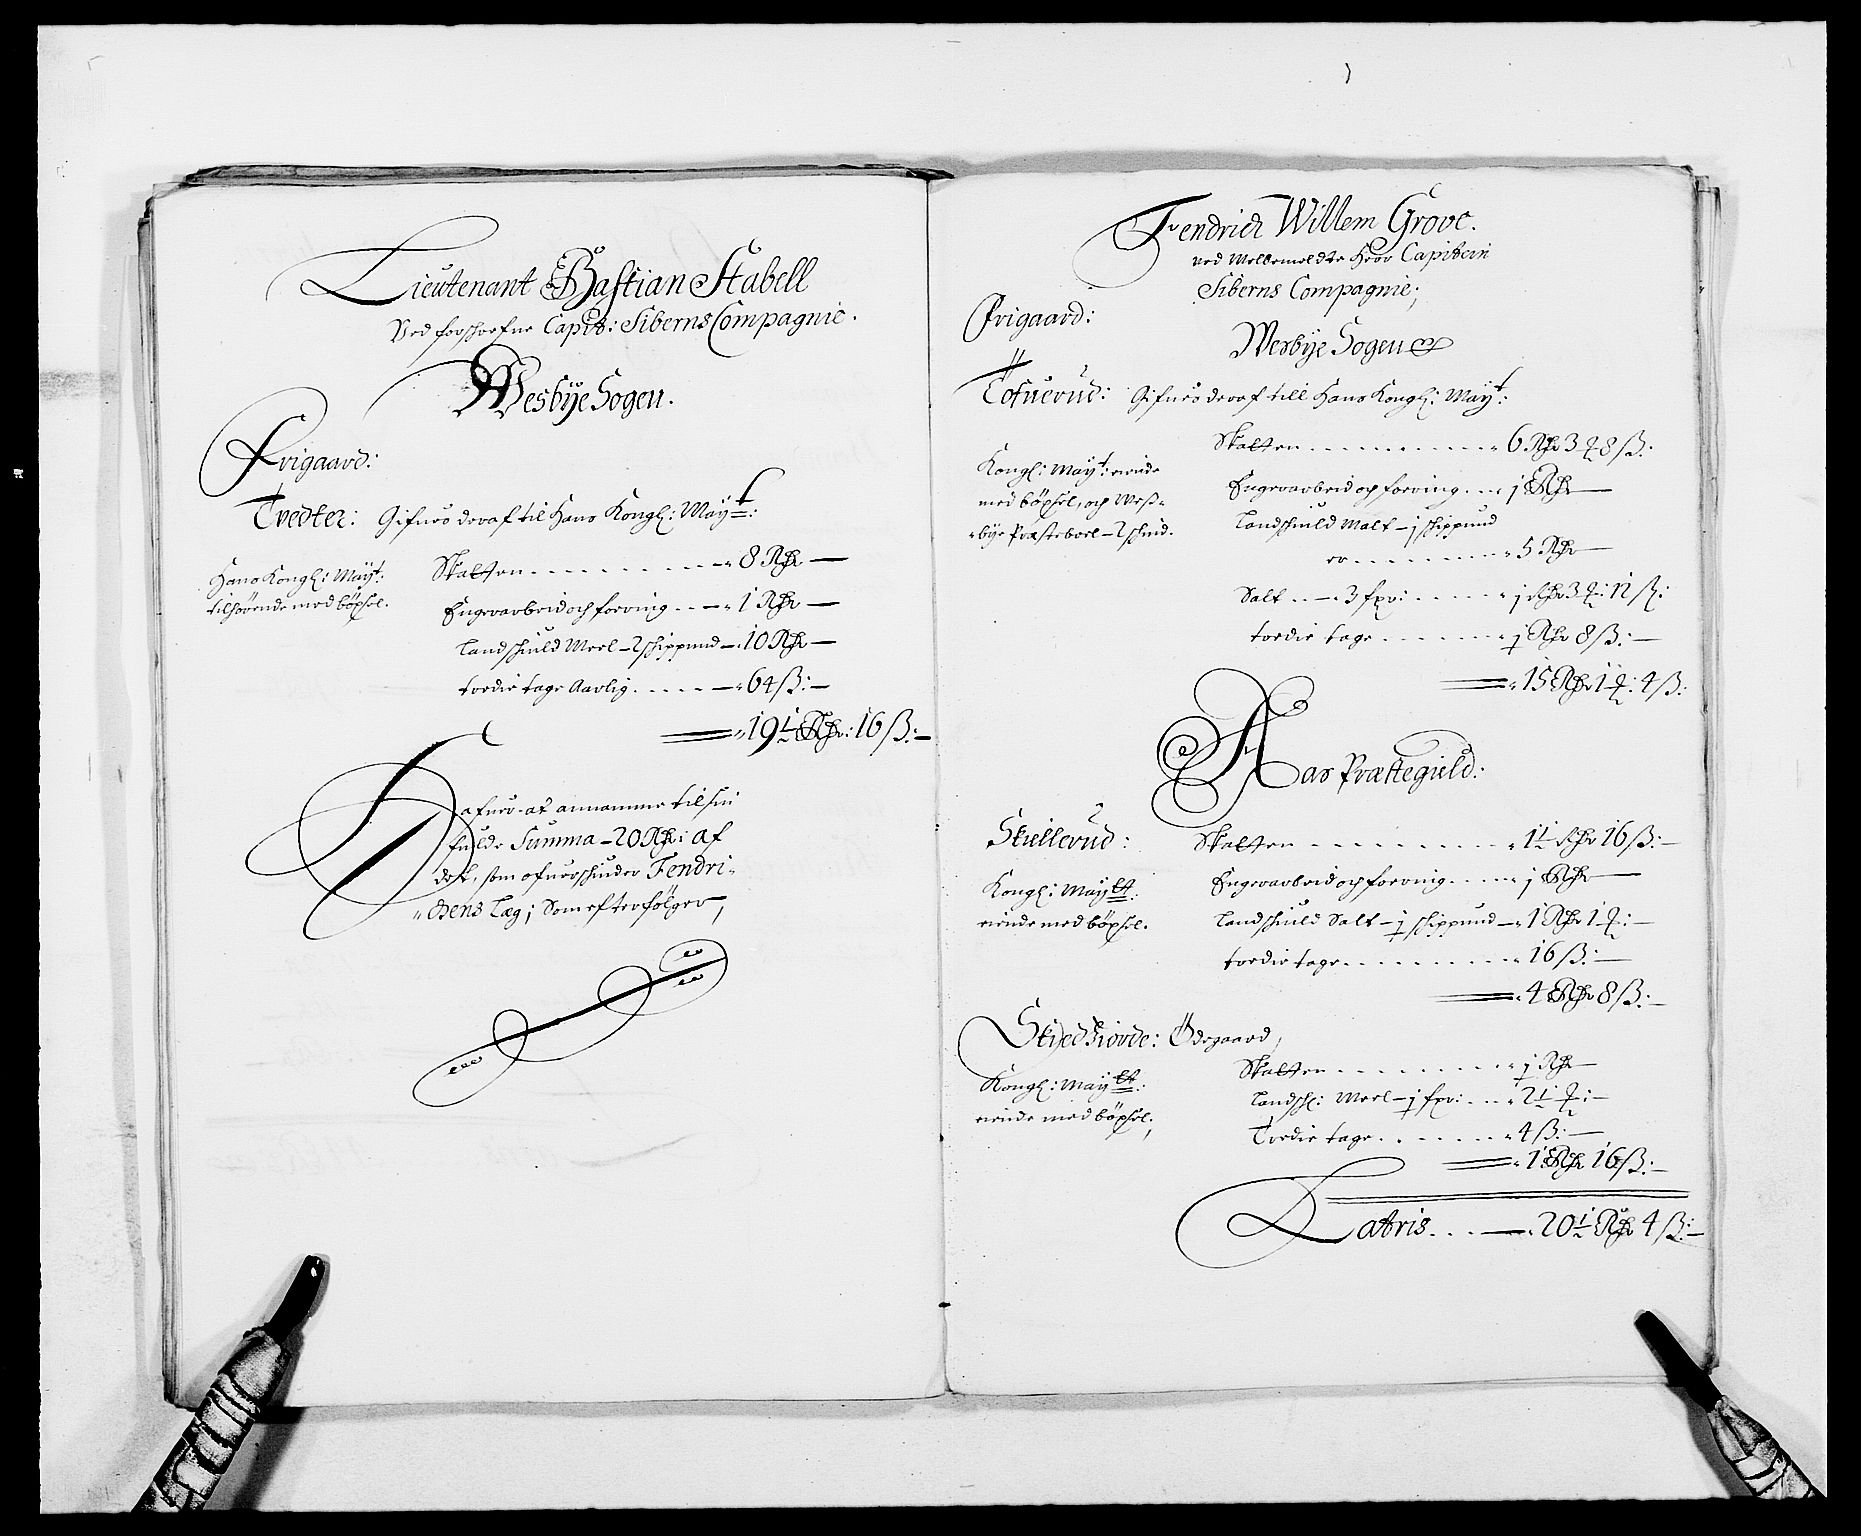 Lieutenant Bastian Stabell
Ved forschrefne Capit: Siberns Compagnie.
Wesbÿe Sogen.
Frigaard:
Tvedter: Gifues deraf til Hans Kongl: Mayt:
Hans Kongl: Maÿt:
tilhörende med böxsel.
Skatten - 8 Rdr
Engerarbeid och foering - 1 Rdr
Landschuld Meel - 2 schippund - 10 Rdr
tredie tage Aarlig - 64 ß:
19½ Rdr: 16 ß:
Hafuer at annamme til sin
fulde Summa - 20 Rdr: af
dest, som ofuerschuder Fendri-
chens Læg; Som efterfølger,
Fendrich Willem Grove.
ved Velbemeldte Herr Capitein
Siberns Compagnie;
Frigaard:
Wesbÿe Sogen
Tofuerud: Gifues deraf till Hans Kongl: Maÿt:
Kongl: Maÿt: eiende
med böxsel, och Wesz-
bye Præsteboel - 2 schind.
Skatten - 6 Rdr 3 ƶ 8 ß:
Engerarbeid och foering - j Rdr
Landschuld Malt - j schippund
er - 5 Rdr
Salt - 3 fxr: - j Rdr 3 ƶ: 12 ß:
tredie tage - j Rdr 8 ß:
15 Rdr 1 ƶ: 4 ß:
Aas Præstegield:
Skuellerud:
Kongl: Maÿtt:
eiende med böxsel.
Skatten - 1½ Rdr 16 ß:
Engerarbeid och foering - j Rdr
Landschuld Salt - j schippund - 1 Rdr 1 ƶ:
tredie tage - 16 ß:
4 Rdr 8 ß:
Ödegaard,
Kongl: Maÿtt:
eiende med böxsel;
Skatten - j Rdr
Landschl: Meel - j fxr: - 2½ ƶ:
Tredie tage - 4 ß:
1½ Rdr 16 ß:
Latris - 20½ Rdr 4 ß: